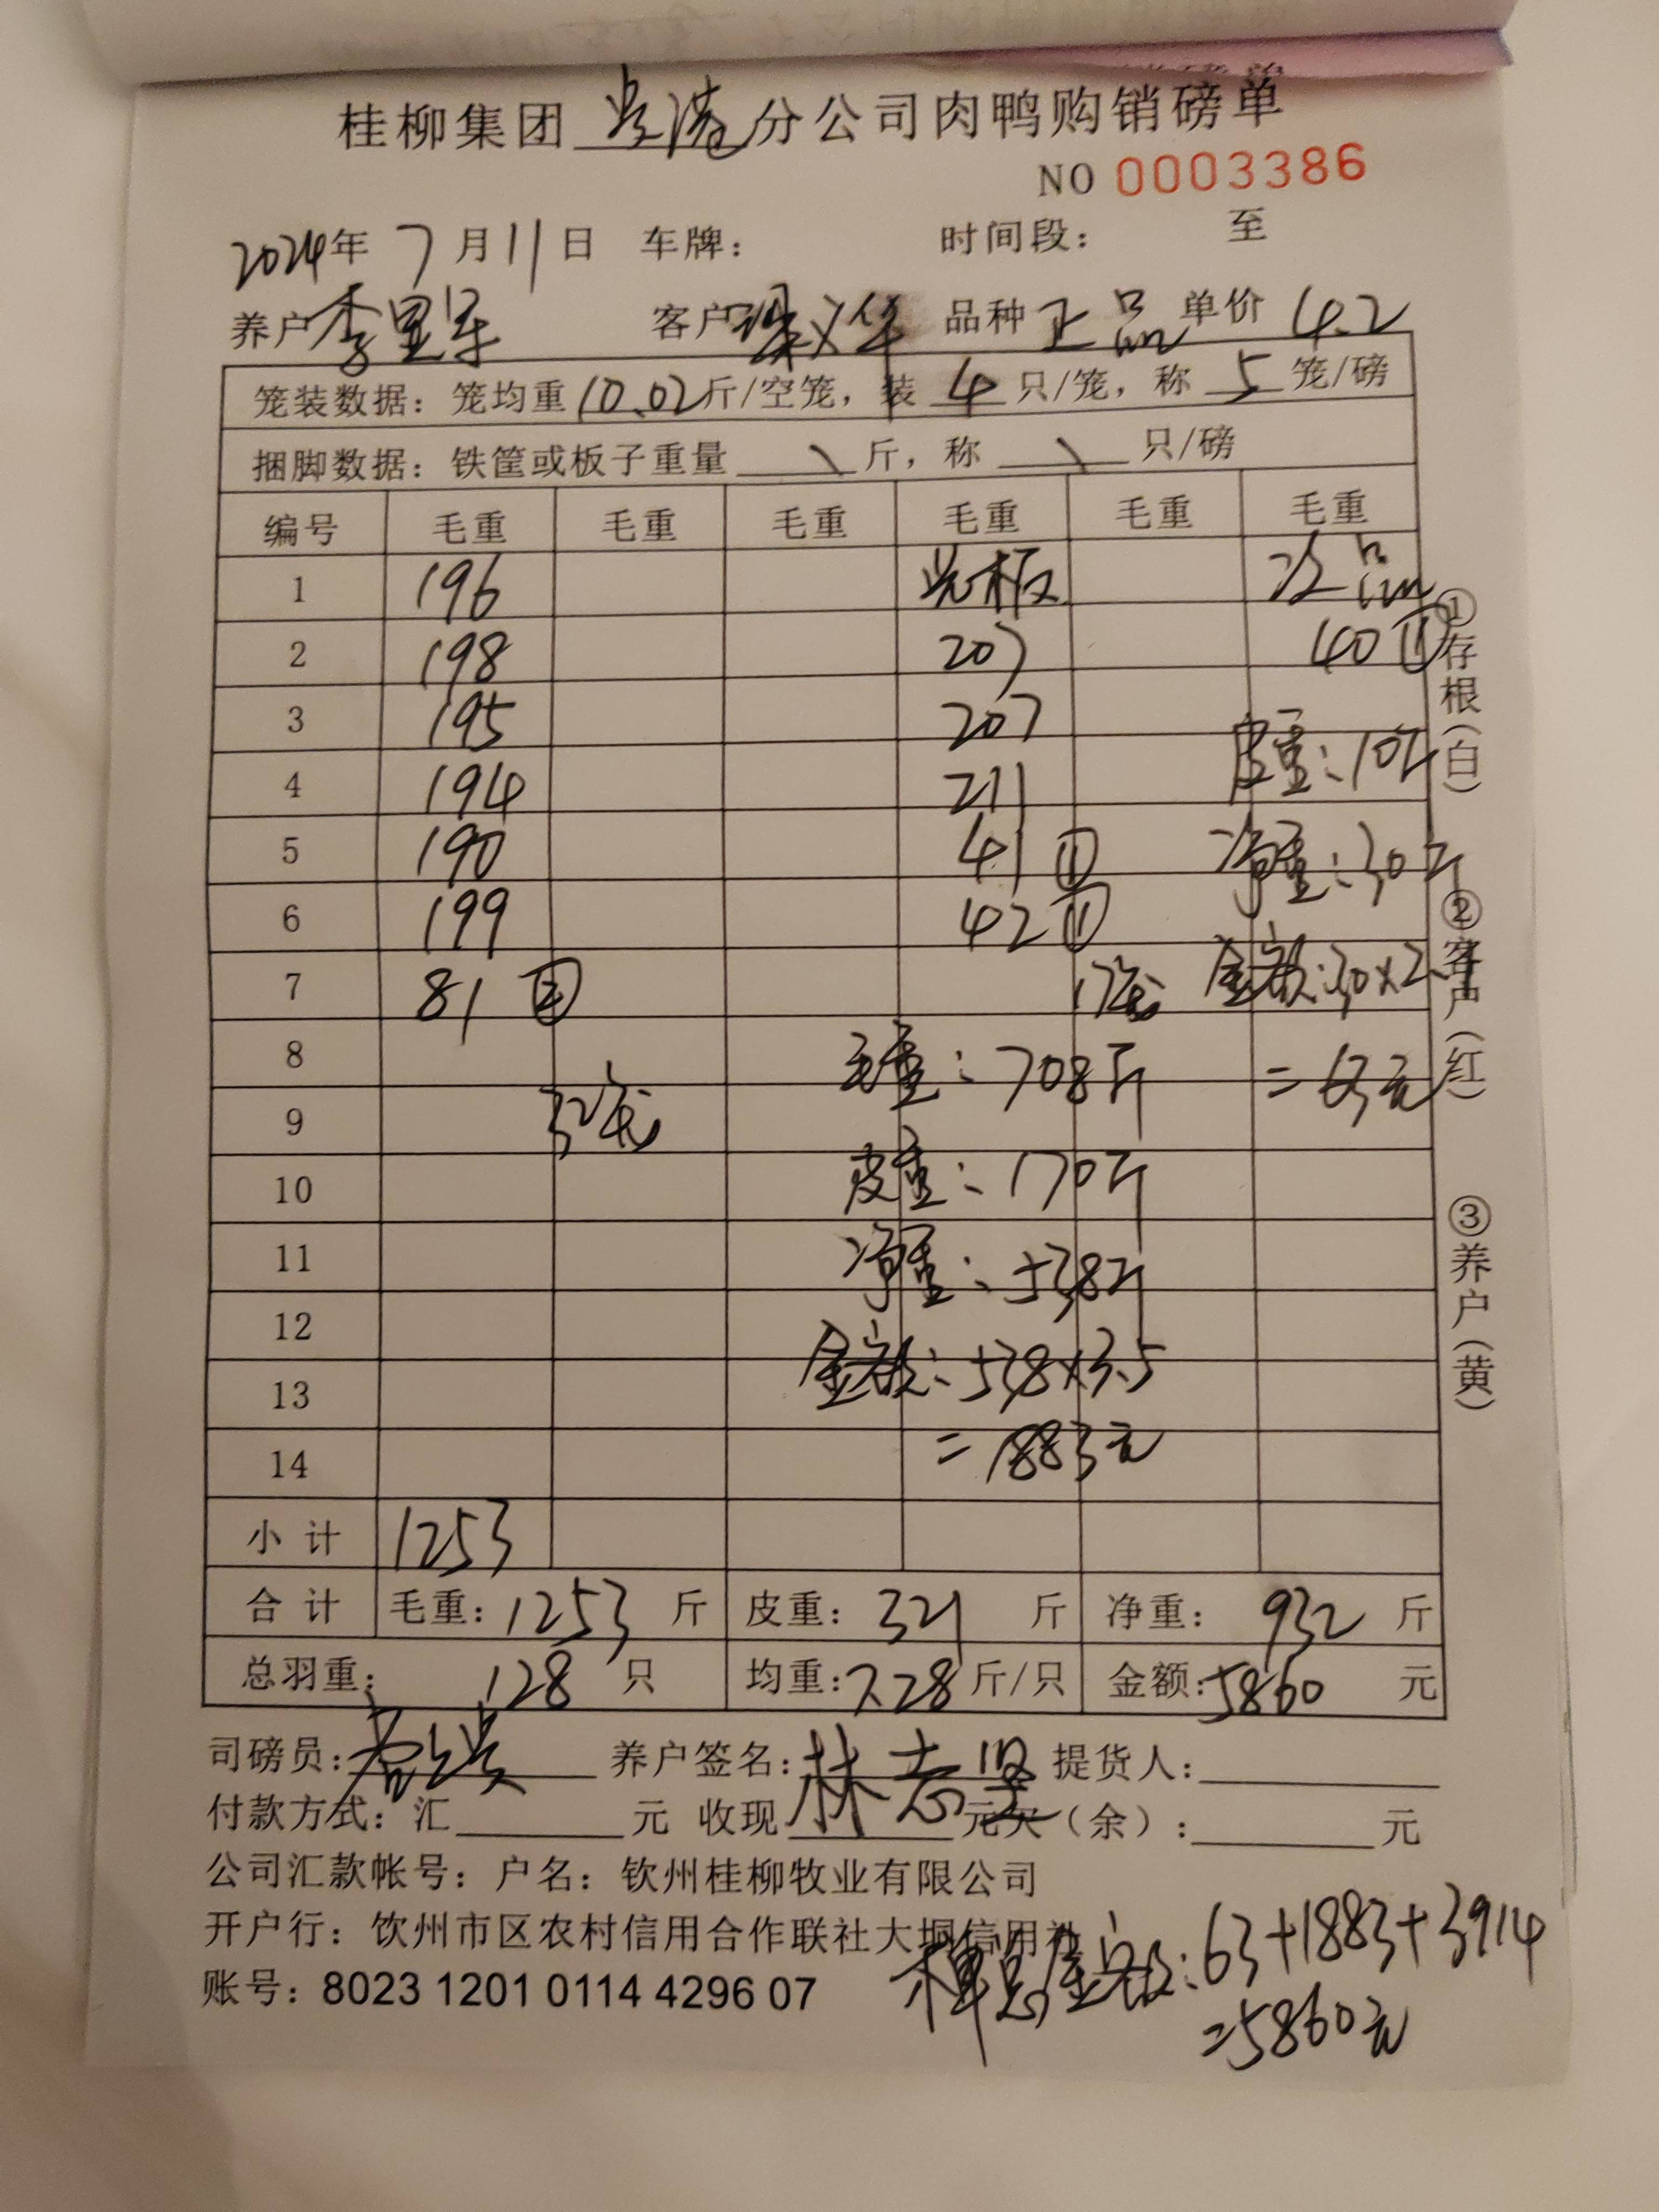 桂柳集团 贵港 分公司肉鸭购销磅单
NO 0003386
2024年 7月11日 车牌: 时间段: 至
养户 李 客户 梁 华 品种 正品 单价 4.2
笼装数据: 笼均重 10.02 斤/空笼, 装 4 只/笼, 称 5 笼/磅
捆脚数据: 铁筐或板子重量 \ 斤, 称 \ 只/磅
编号 毛重 毛重 毛重 毛重 毛重 毛重
1 196 光板 次品
2 198 207 40 ①
3 195 207 皮重:10斤
4 194 211
5 190 41 ① 净重:30斤
6 199 42 ①
7 81 ② 17笼 金额:30×2.1
8 毛重:708斤 =63元
9 32笼
10 皮重:170斤
11 净重:538斤
12
13 金额:538×3.5
14 =1883元
小计 1253
合计 毛重: 1253 斤 皮重: 321 斤 净重: 932 斤
总羽重: 128 只 均重: 7.28 斤/只 金额: 5860 元
司磅员: 养户签名: 林志坚 提货人:
付款方式: 汇 元 收现 元欠(余): 元
公司汇款帐号: 户名: 钦州桂柳牧业有限公司
开户行: 饮州市区农村信用合作联社大垌信用社
账号: 8023 1201 0114 4296 07
总金额:63+1883+3914
=5860元
①存根(白)
②客户(红)
③养户(黄)